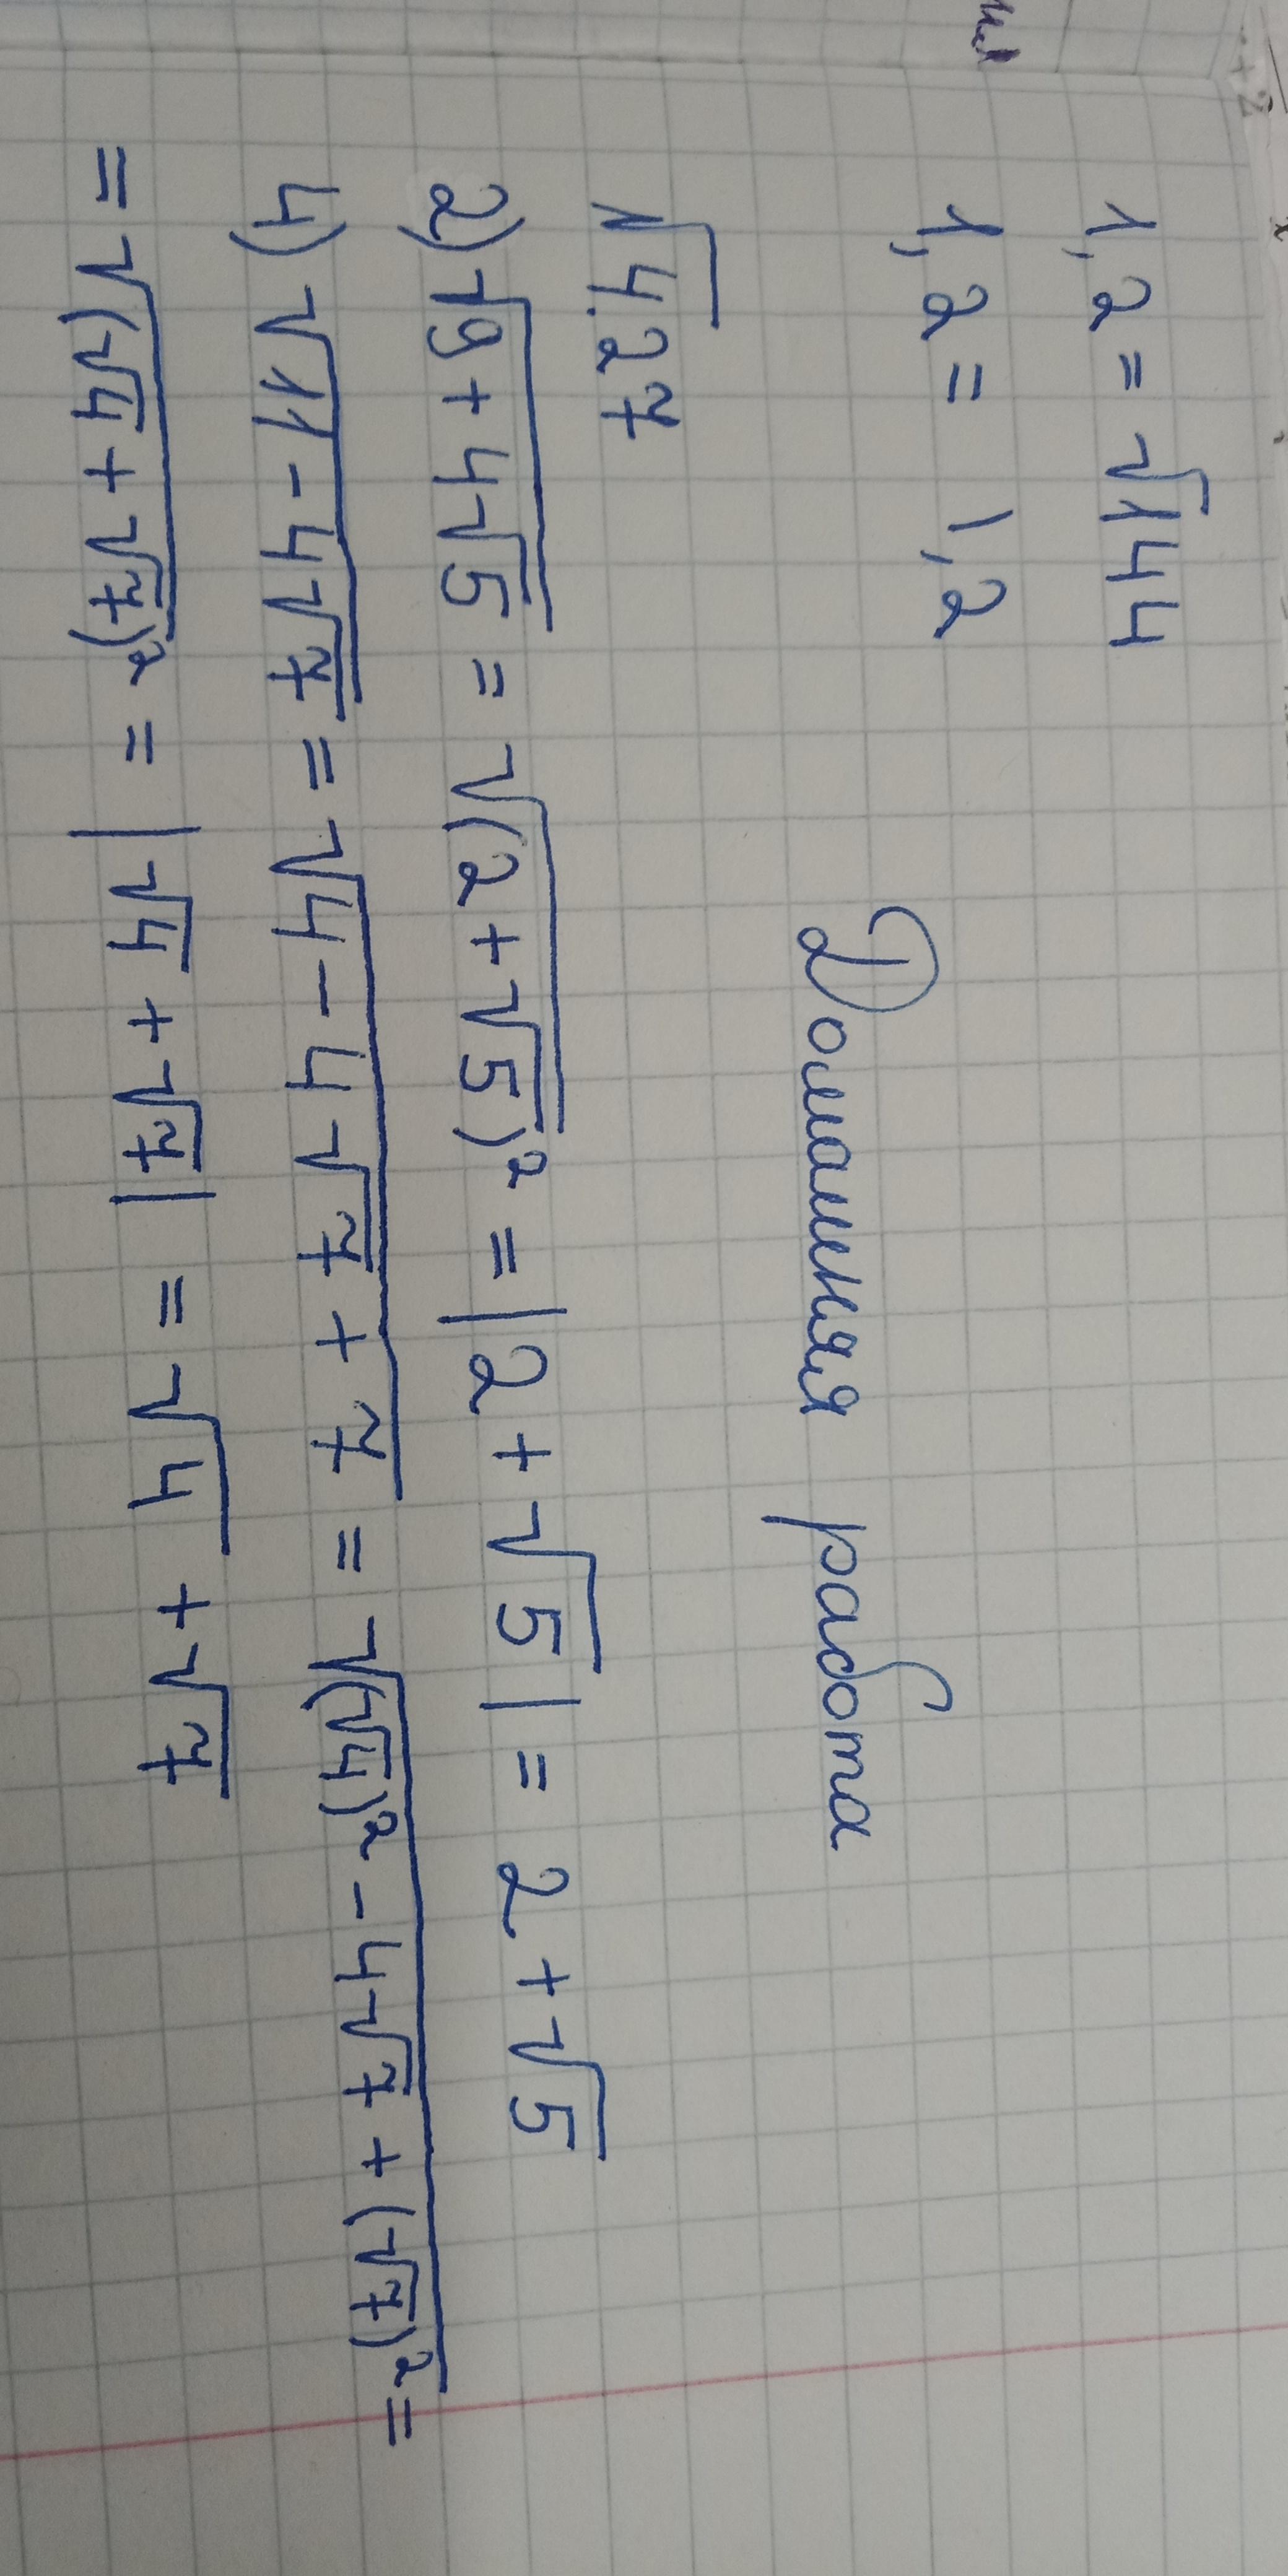 1,2 = √144
1,2 = 1,2
Домашняя работа
√4.27
2) √(9 + 4√5) = √((2 + √5)²) = |2 + √5| = 2 + √5
4) √(11 - 4√7) = √(4 - 4√7 + 7) = √((√4)² - 4√7 + (√7)²) =
= √((√4 + √7)²) = |√4 + √7| = √4 + √7